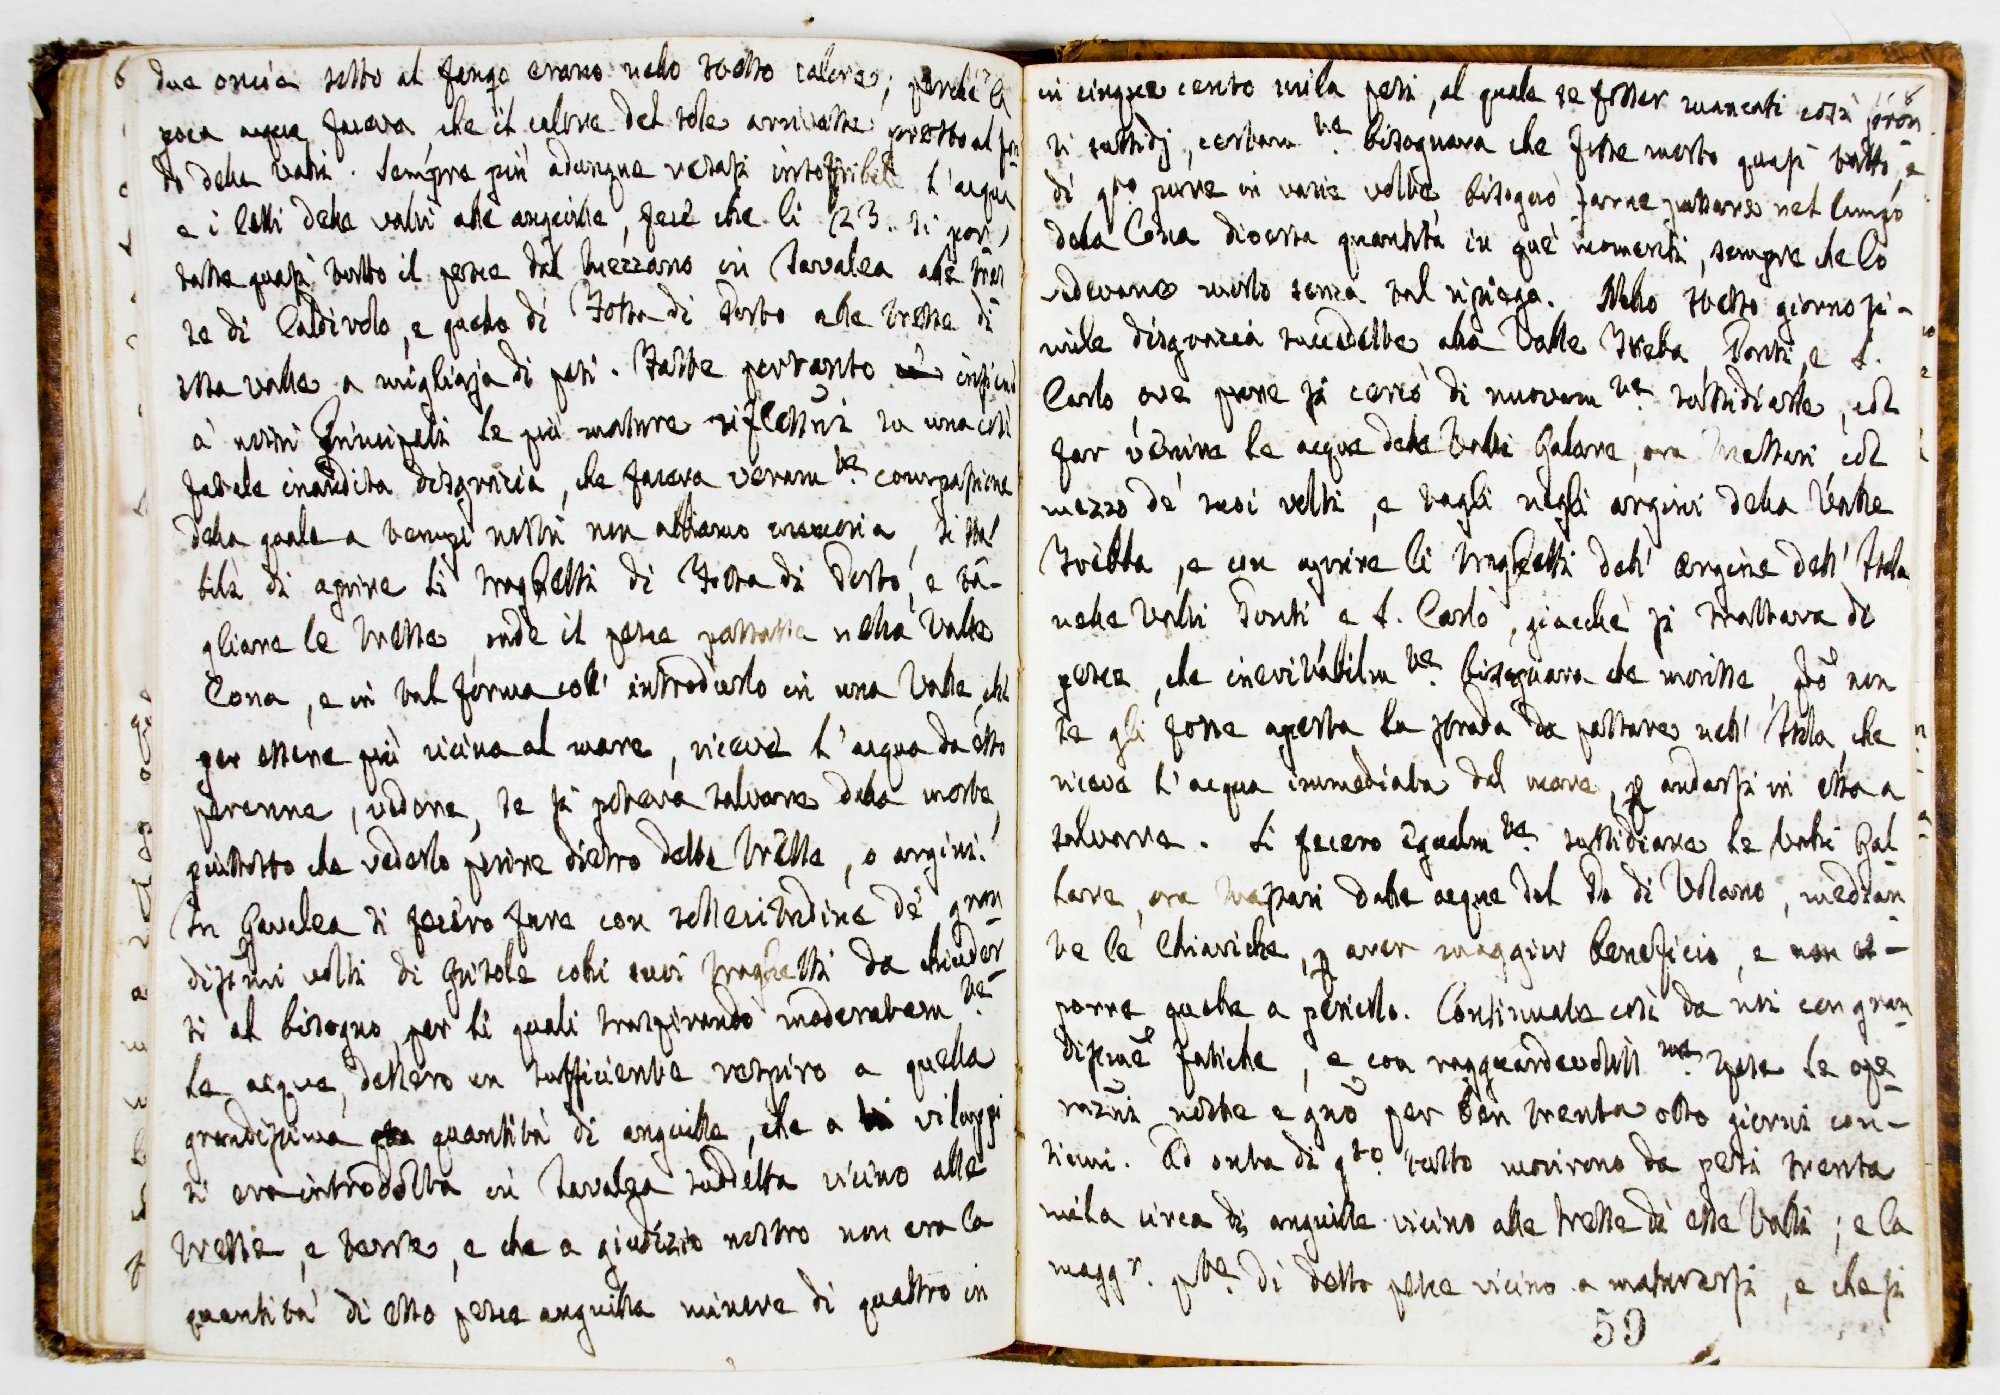 due oncie sotto al fango erano nello stesso calore; perchè la
poca acqua faceva, che il calore del sole arrivasse presto al fon
do delle valli. Sempre più adunque resasi insoffribile l'acqua
e i letti delle valli alle anguille, fece che li 23. si por,
tasse quasi tutto il pesce dal Mezzano in Gavalea alle tres
se di Caldirolo, e quello di Fossa di Porto alle tresse di
essa valle a migliaja di pesi. Fatte pertanto
a' nostri Principali le più mature riflessni su una così
fatale inaudita disgrazia, che faceva veram.te compassione
della quale a tempi nostri non abbiamo memoria, si sta
bilì di aprire li traghetti di Fossa di Porto, e ta-
gliare le tresse, onde il pesce passasse nella Valle
Cona, e in tal forma coll' introdurlo in una Valle, che
per essere più vicina al mare, riceve l'acqua da esso
perenne, vedere, se si poteva salvare dalla morte,
piuttosto che vederlo perire dietro delle tresse, o argini.
In Gavalea si fecero fare con sollecitudine de' gran
dissimi volti di Grisole colli suoi traghetti da chiuder
si al bisogno per li quali traspirando moderatam.te
le acque, dassero un sufficiente respiro a quella
grandissima quantità di anguille, che a viluppi
si era introdotta in Gavalea suddetta vicino alle
tresse, e terre, e che a giudizio nostro non era la
quantità di esso pesce anguilla minore di quattro in
in cinque cento mila pesi, al quale se fosser mancati così pron
ti sussidj, certam.te bisognava che fosse morto quasi tutto, e
di q.to pure in varie volte bisognò farne passare nel lungo
della Cona diversa quantità in que' momenti, sempre che lo
vedevano morto senza tal ripiego. Nello stesso giorno si-
mile disgrazia succedette alla Valle Trebba, Ponti, e S.
Carlo, ove pure si cercò di nuovam.te sussidiarle, col
far venire le acque delle Valli Galare, ora Mattari, col
mezzo de' suoi volti, e tagli negli argini della Valle
Trebba, e con aprire li traghetti dell' argine dell' Isola
nelle Valli Ponti e S. Carlo, giacchè si trattava di
pesce, che inevitabilm.te bisognava che morisse, però non
se gli fosse aperta la strada da passare nell' Isola, che
riceve l'acqua immediata dal mare, p andarsi in essa a
salvare. Si fecero egualm.te sussidiare le Valli Gal-
lare, ora Mattari dalle acque del Po di Volano, median
te le Chiaviche, p aver maggior beneficio, e non es-
porre quelle a pericolo. Continuate così da noi con gran
dissime fatiche, e con ragguardevolissme spese le ope
razni notte e gno per ben trenta otto giorni con-
tinui. Ad onta di q.to tutto morirono da pesi trenta
mila circa di anguille vicino alle tresse di esse Valli; e la
magg.r p.te di detto pesce vicino a maturarsi, e che si
59